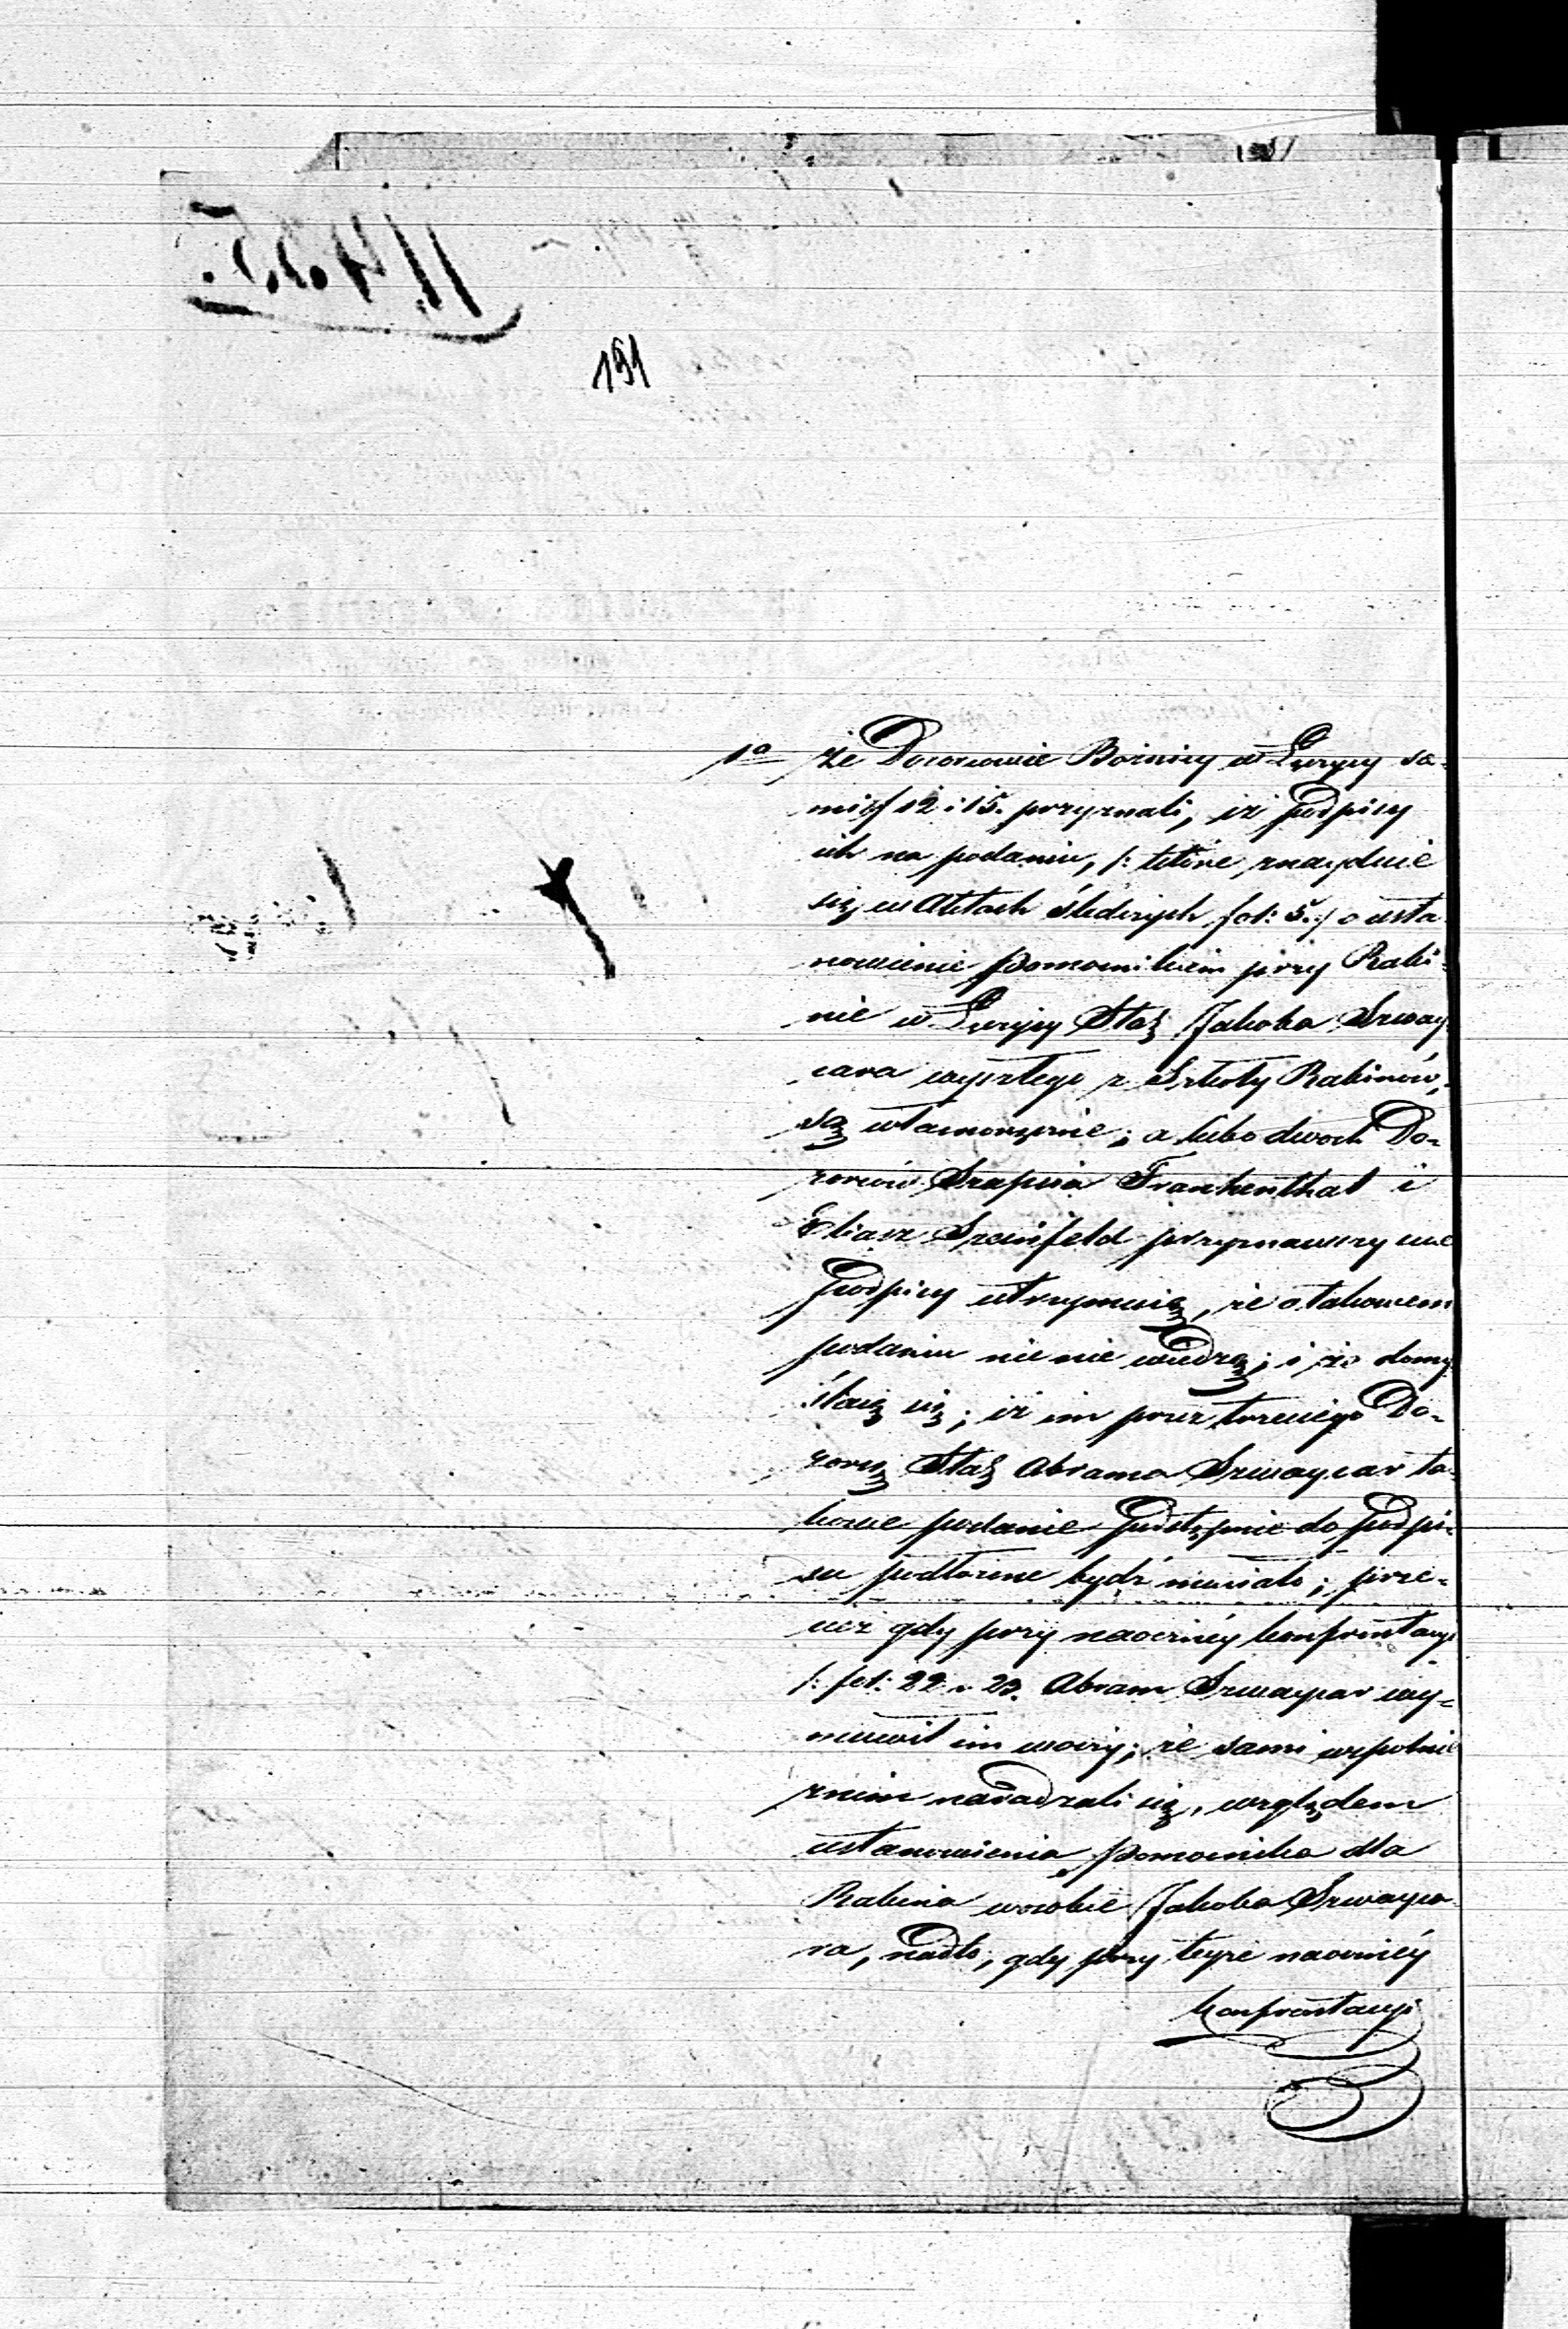 191
1º że Dozorcowie Bożnicy w Łęczycy sa-
mi /f 12 i 15. przyznali, iż podpisy
ich na podaniu, /: które znayduie
się w Aktach śledczych fol: 5. :/ o usta
nowienie Pomocnikiem przy Rabi-
nie w Łęczycy Staz Jakoba Szway
cara wyszłego z Szkoły Rabinów,
są własnoręczne; a lubo dwoch Do-
zorców Szapsia Frankenthal i
Eliasz Szeinfeld przyznawszy swe
Podpisy utrzymuią, że o takowem
podaniu nic nie wiedzą; i że domy
ślaią się; iż im przez trzeciego Do-
zorcę Staz Abrama Szwaycar ta-
kowe podanie Podstępnie do podpi-
su podłożone bydź musiało; prze-
cież gdy przy naoczney konfrontacyi
/: fol: 22 i 23. Abram Szwaycar wy-
mówił im w oczy; że sami wspolnie
z nim naradzali się, względem
ustanowienia Pomocnika dla
Rabina w osobie Jakoba Szwayca
ra, nadto, gdy przy teyże naoczney
konfrontacyi